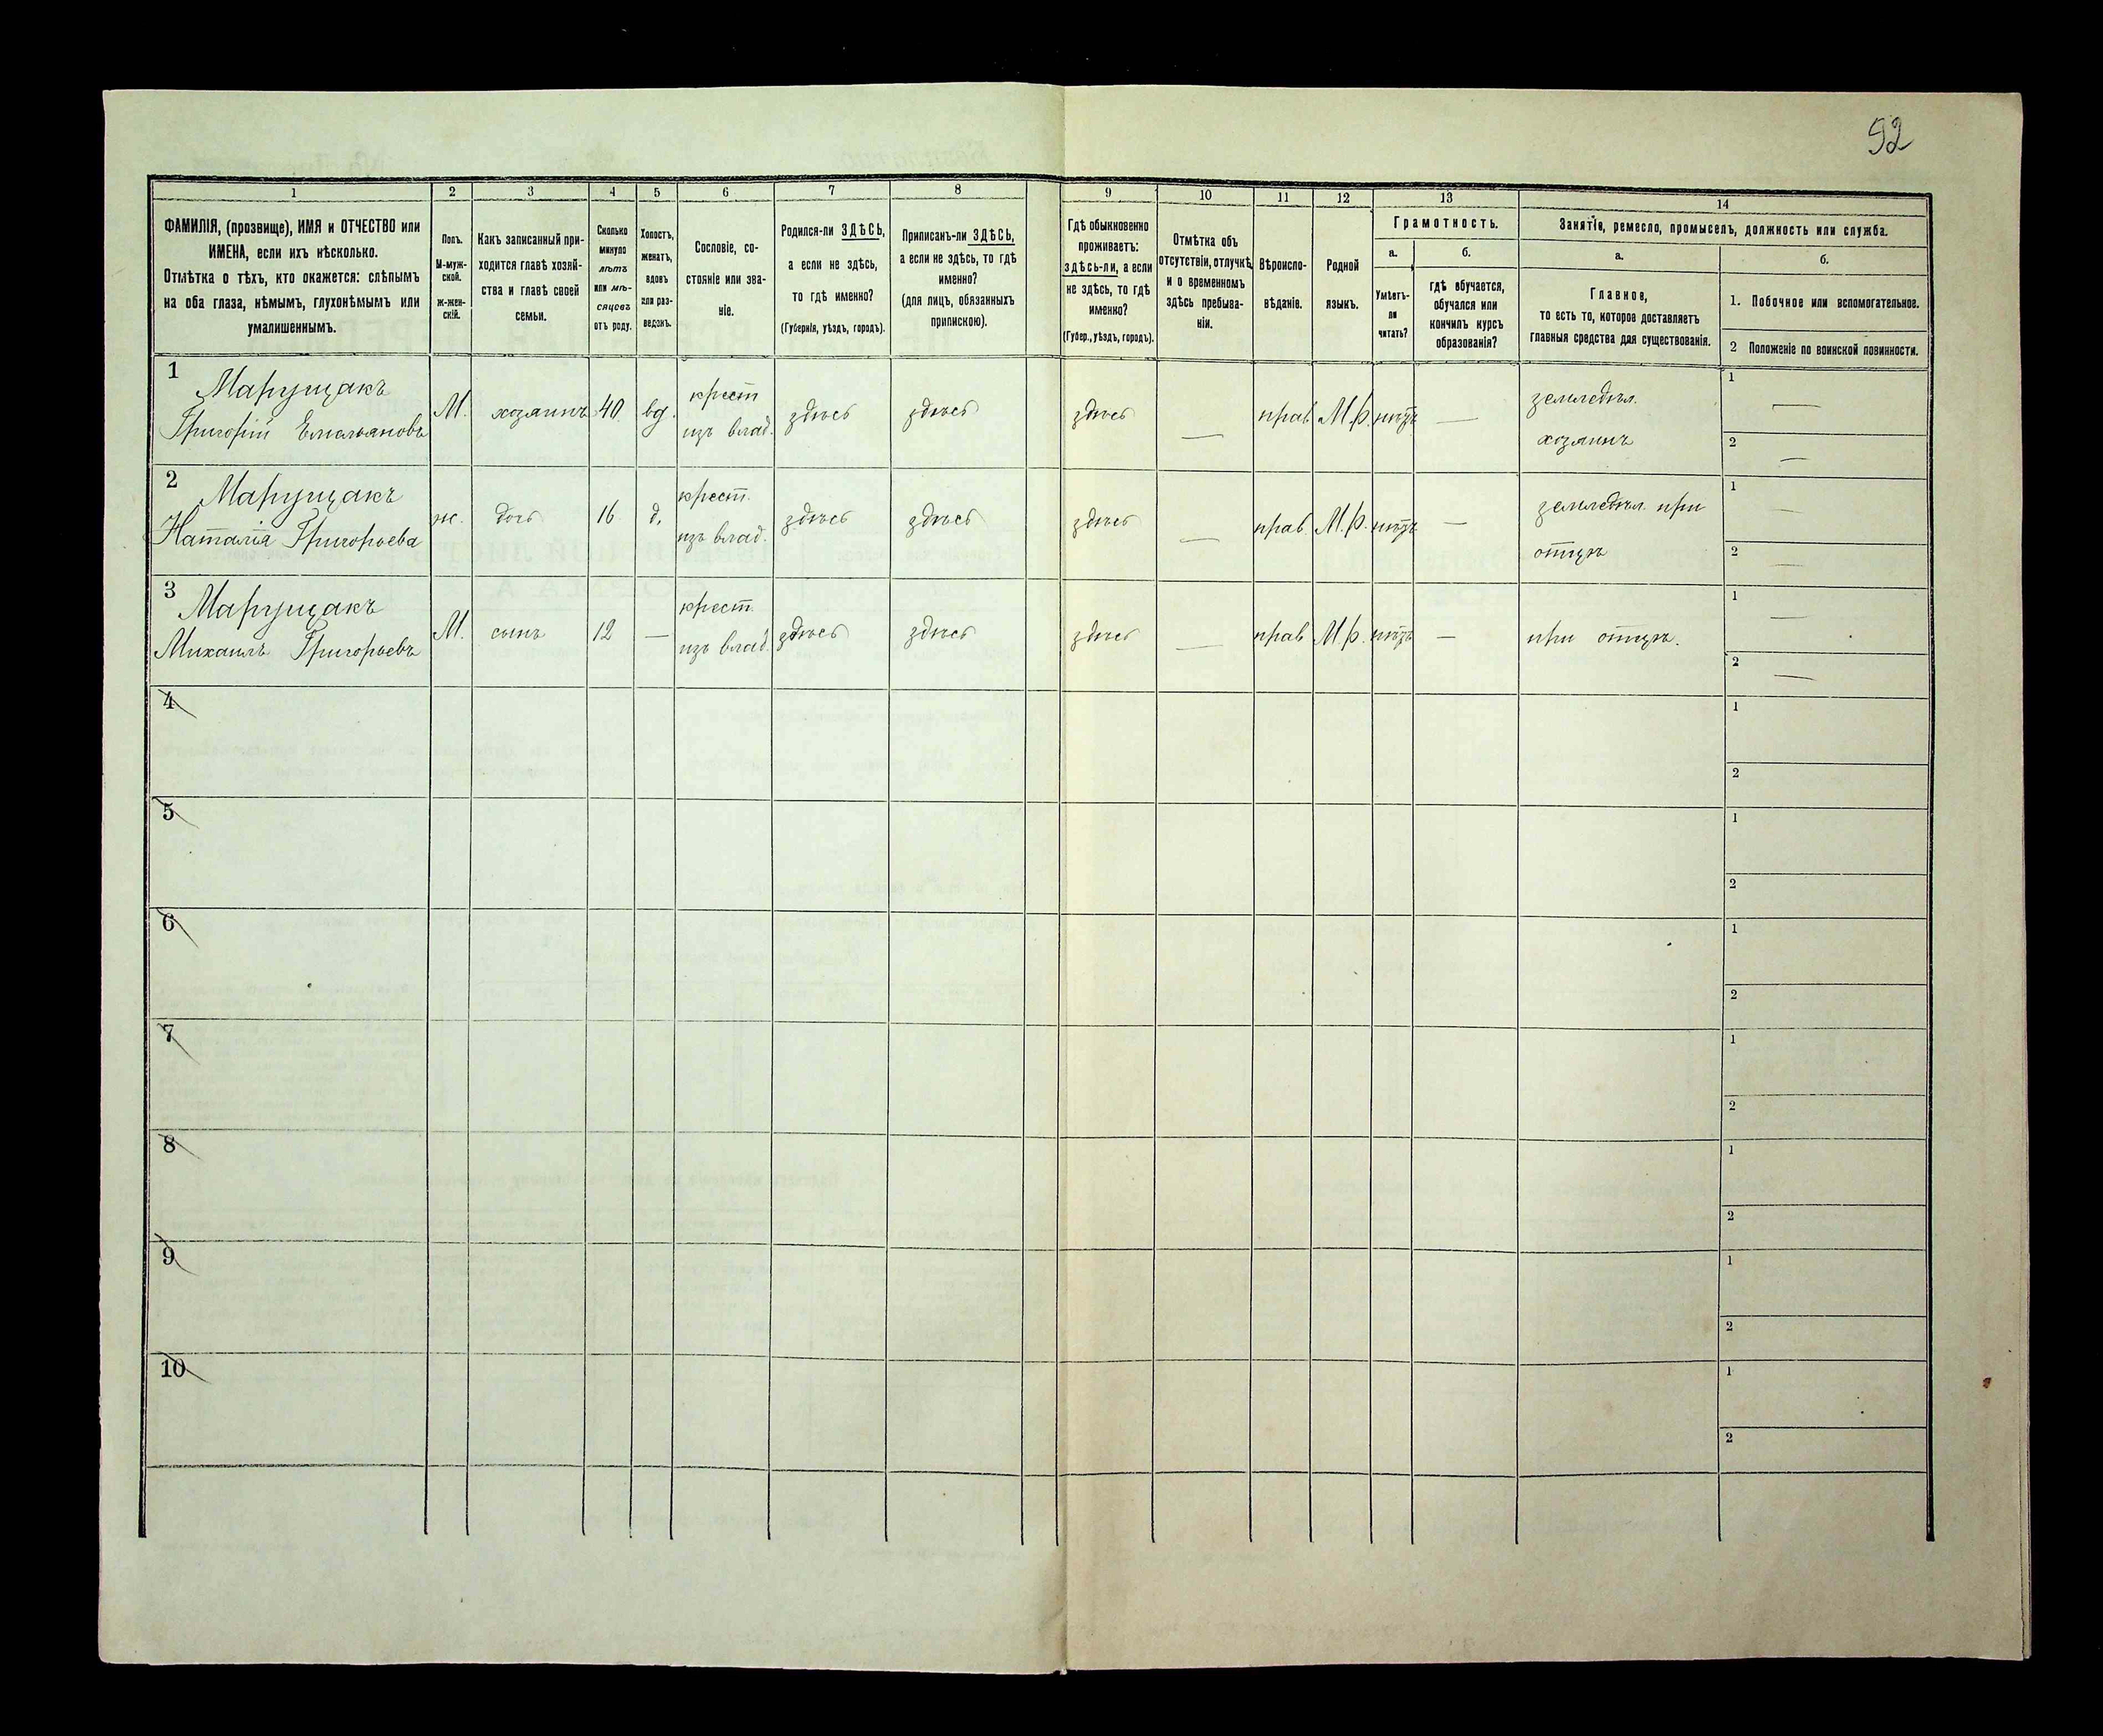 92
1 2 3 4 5 6 7 8 9 10 11 12 13 14
ФАМИЛІЯ, (прозвище), ИМЯ и ОТЧЕСТВО или
ИМЕНА, если ихъ нѣсколько.
Отмѣтка о тѣхъ, кто окажется: слѣпымъ
на оба глаза, нѣмымъ, глухонѣмымъ или
умалишеннымъ.
Полъ.
М-муж-
ской.
ж-жен-
скій.
Какъ записанный при-
ходится главѣ хозяй-
ства и главѣ своей
семьи.
Сколько
минуло
лѣтъ
или мѣ-
сяцевъ
отъ роду.
Холостъ,
женатъ,
вдовъ
или раз-
веденъ.
Сословіе, со-
стояніе или зва-
ніе.
Родился-ли ЗДѢСЬ,
а если не здѣсь,
то гдѣ именно?
(Губернія, уѣздъ, городъ).
Приписанъ-ли ЗДѢСЬ,
а если не здѣсь, то гдѣ
именно?
(для лицъ, обязанныхъ
припискою).
Гдѣ обыкновенно
проживаетъ:
здѣсь-ли, а если
не здѣсь, то гдѣ
именно?
(Губер., уѣздъ, городъ).
Отмѣтка объ
отсутствіи, отлучкѣ,
и о временномъ
здѣсь пребыва-
ніи.
Вѣроиспо-
вѣданіе.
Родной
языкъ.
Грамотность.
а.
Умѣетъ-
ли
читать?
б.
гдѣ обучается,
обучался или
кончилъ курсъ
образованія?
Занятіе, ремесло, промыселъ, должность или служба.
а.
Главное,
то есть то, которое доставляетъ
главныя средства для существованія.
б.
1. Побочное или вспомогательное.
2 Положеніе по воинской повинности.
1 Марущакъ
Григорій Емельяновъ
М. хозяинъ 40 вд.
крест
из влад.
здѣсь здѣсь здѣсь — прав М.р. нѣтъ —
земледѣл.
хозяинъ
1 —
2 —
2 Марущакъ
Наталія Григорьева
ж. дочь 16 д.
крест.
изъ влад.
здѣсь здѣсь здѣсь — прав. М.р. нѣтъ —
земледѣл. при
отцѣ
1 —
2 —
3 Марущакъ
Михаилъ Григорьевъ
М. сынъ 12 —
крест.
изъ влад.
здѣсь здѣсь здѣсь — прав М.р. нѣтъ —
при отцѣ.
1 —
2 —
4
1
2
5
1
2
6
1
2
7
1
2
8
1
2
9
1
2
10
1
2